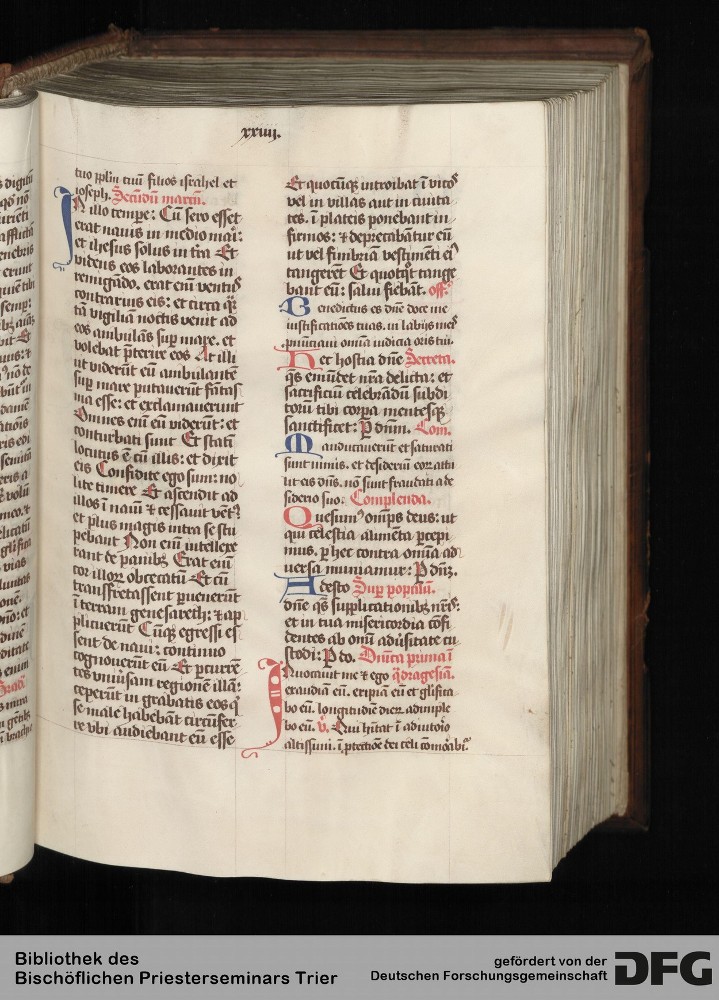 xxiiij.
tuo pplm tuū filios israhel et
ioseph. Secūdū marcū.
In illo tempe: Cū sero esset
erat nauis in medio mari:
et ihesus solus in tra Et
videns eos laborantes in
remigādo. erat eni ventꝰ
contrarius eis: et circa qr
tā vigiliā noctis venit ad
eos ambulās sup mare. et
volebat pterire eos At illi
ut viderūt eū ambulantē
sup mare putauerūt fātas
ma esse: et exclamauerunt
Omnes eni eū viderūt: et
conturbati sunt Et statī
locutus ē cū illis: et dixit
eis Confidite ego sum: no
lite timere Et ascendit ad
illos ī nauī ⁊ cessauit vētꝰ
et plus magis intra se stu
pebant Non eni intellexe
rant de panibꝫ Erat eni
cor illorꝝ obcecatū Et cū
transfretassent puenerūt
ī terram genesareth: ⁊ ap
plicuerūt Cūqꝫ egressi es
sent de naui: continuo
cognouerūt eū Et pcurrē
tes vniūsam regionē illā:
ceperūt in grabatis eos q
se male habebāt circūfer
re vbi audiebant eū esse
Et quocūqꝫ introibat ī vicoꝭ
vel in villas aut in ciuita
tes. ī plateis ponebant in
firmos: ⁊ deprecabātur eū
ut vel fimbriā vestimēti eiꝰ
tangerēt Et quotqt tange
bant eū: salui fiebāt. off.
Benedictus es dn̄e doce me
iustificatiōes tuas. in labijs meꝭ
pnūciaui omīa iudicia oris tui.
Hec hostia dn̄e Secreta.
qs emūdet nr̄a delicta: et
sacrificiū celebrādū subdi
torū tibi corpa mentesqꝫ
sanctificet: P dnm. Com.
Manducauerūt et saturati
sunt nimis. et desideriū eorꝝ attu
lit eis dn̄s. nō sunt fraudati a de
siderio suo. Complenda.
Quesumꝰ omps deus: ut
qui celestia alimēta pcepi
mus. p hec contra omīa ad
uersa muniamur: P dnꝫ.
Adesto Sup populū.
dn̄e qs supplicationibꝫ nr̄is:
et in tua misericordia cōfi
dentes ab omī adūsitate cu
stodi: P do. Dnīca prima ī
Inuocauit me ⁊ ego qdragesia.
exaudiā eū. eripiā eū et glifica
bo eū. longitudīē dierꝝ adimple
bo eū. v. Qui hītat ī adiutorio
altissimi. ī ptectiōe dei celi cōmorabiꝰ
Bibliothek des
Bischöflichen Priesterseminars Trier
gefördert von der
Deutschen Forschungsgemeinschaft
DFG